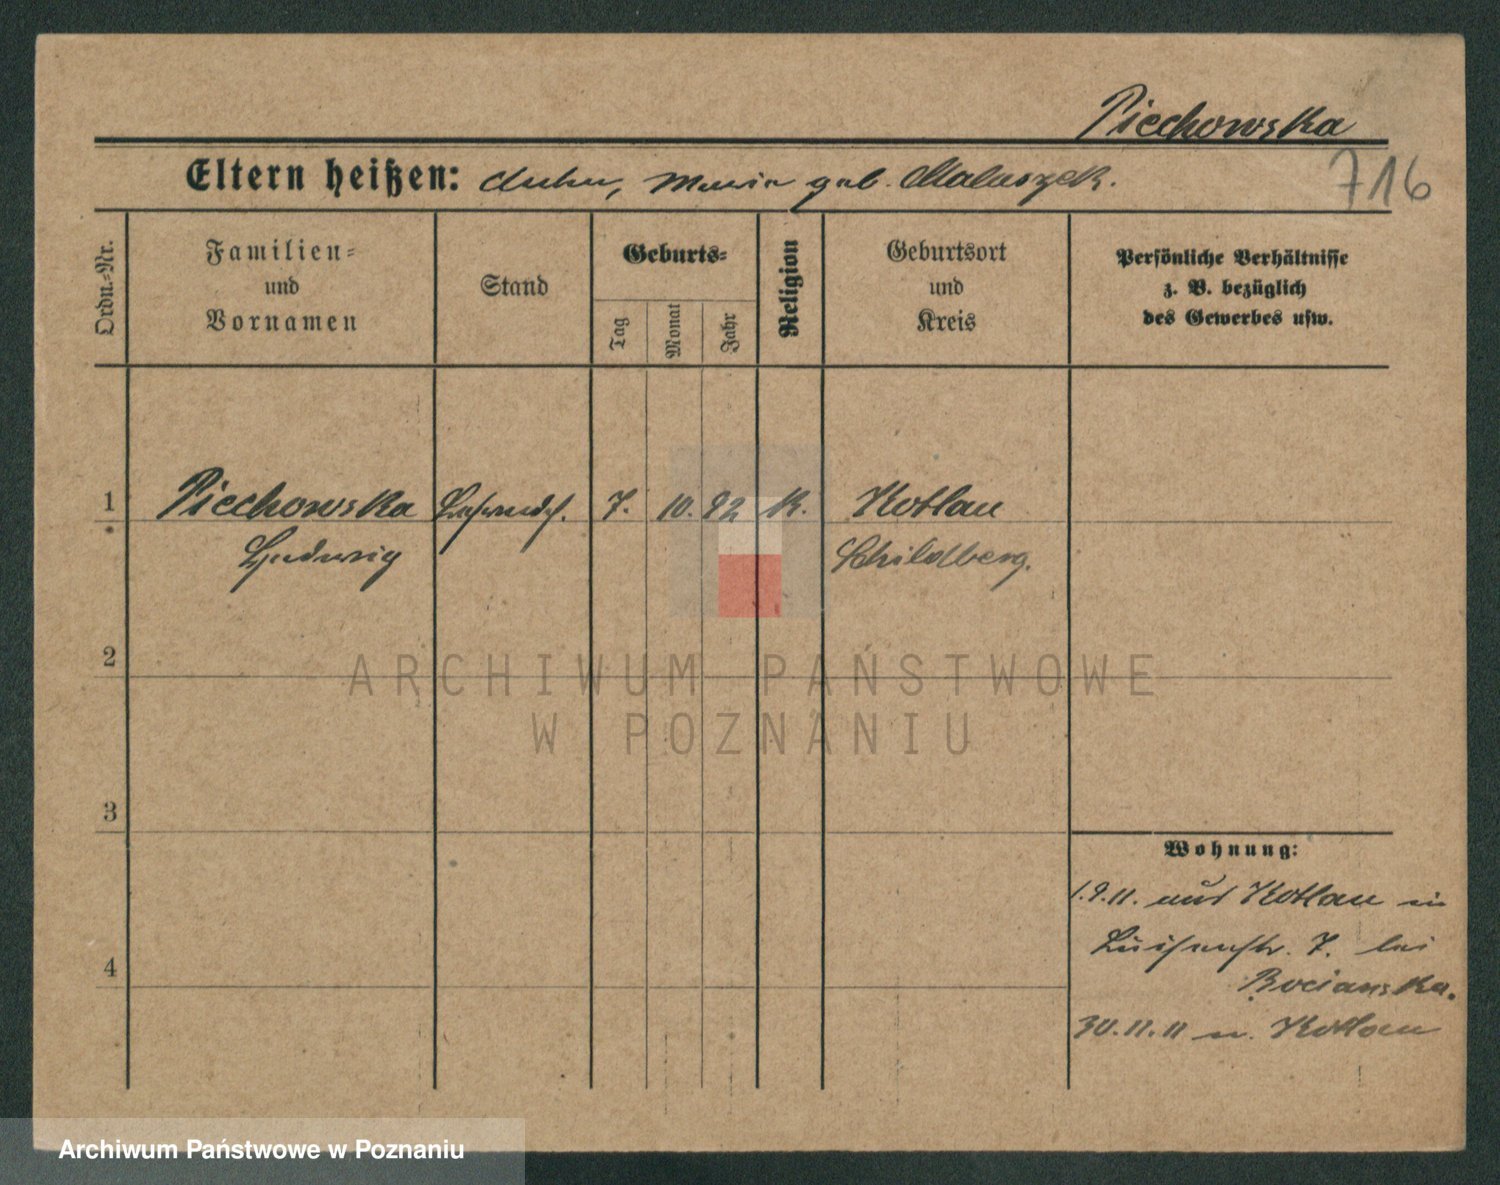 Piechowska
Eltern heißen: Anton, Maria geb. Malaszek.
716
Ordn.-Nr.
Familien-
und
Vornamen
Stand
Geburts-
Tag
Monat
Jahr
Religion
Geburtsort
und
Kreis
Persönliche Verhältnisse
z. B. bezüglich
des Gewerbes usw.
1 Piechowska 7. 10. 92 k. Kotlau
Hedwig Schildberg.
2
3
4
Wohnung:
1.9.11. aus Kotlau in
Luisenstr. 7. bei
Bocianska.
30.11.11 n. Kotlau
ARCHIWUM PAŃSTWOWE
W POZNANIU
Archiwum Państwowe w Poznaniu